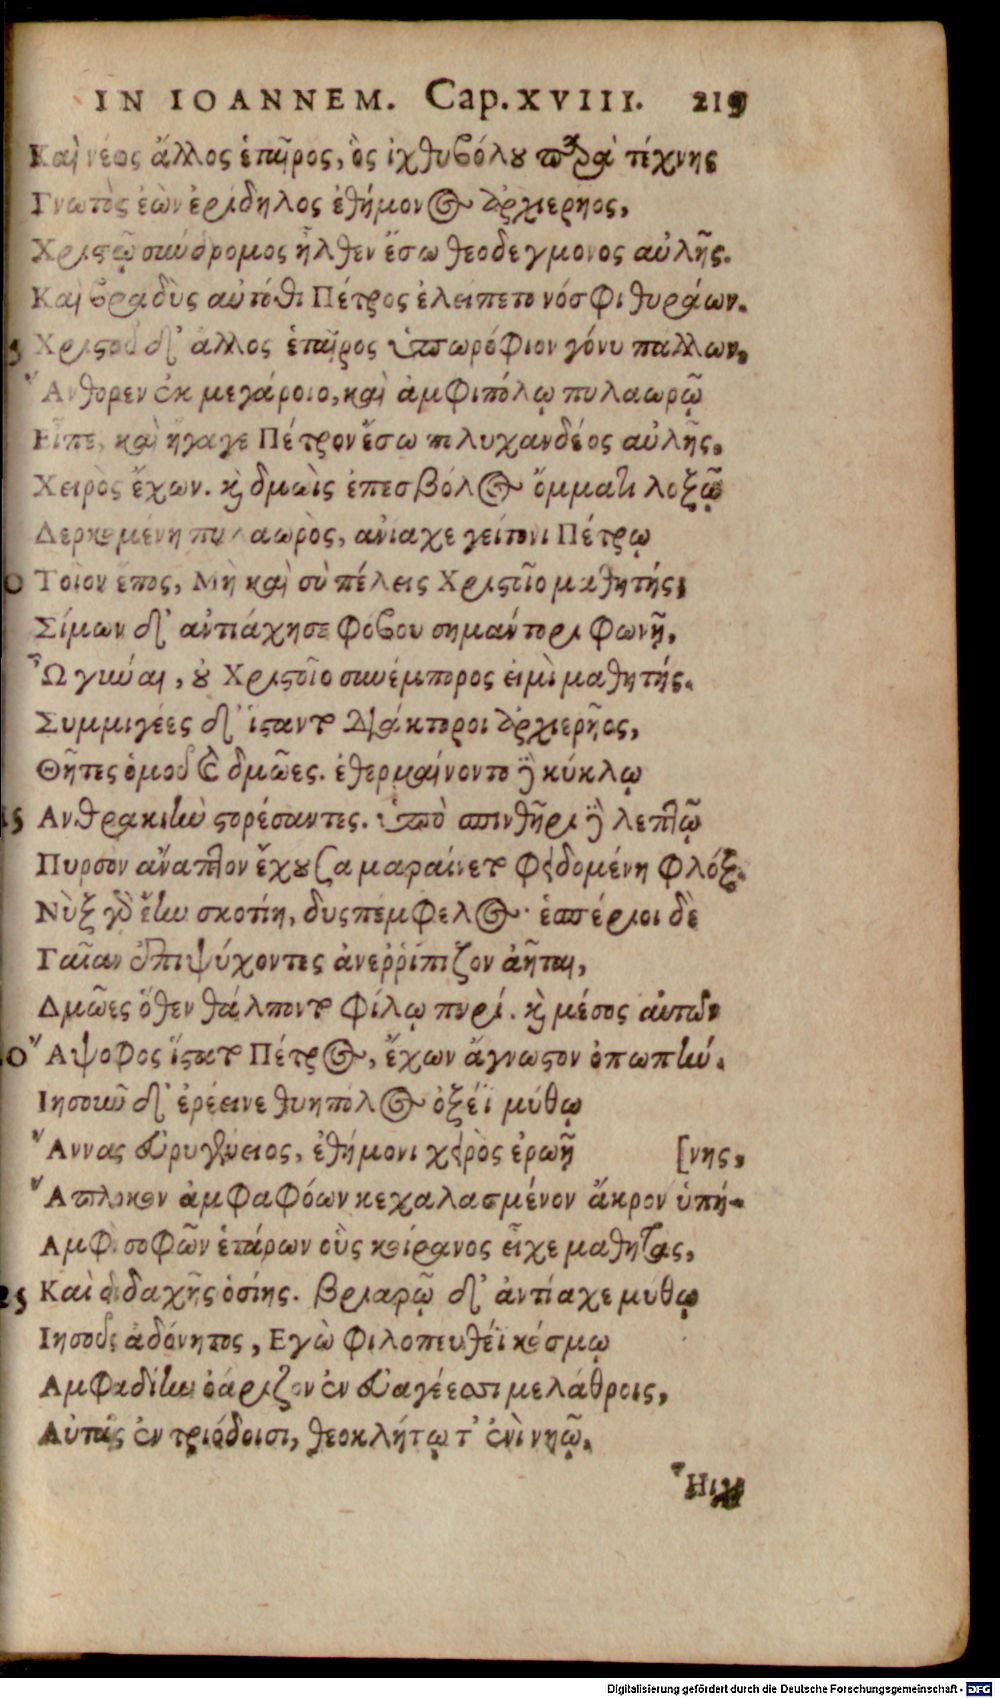 IN IOANNEM. Cap. XVIII. 219
Καὶ νέος ἄλλος ἑταῖρος, ὃς ἰχθυβόλου παρὰ τέχνης
Γνωτὸς ἐὼν ἐρίδηλος ἐθήμονος ἀρχιερῆος,
Χριστῷ σύνδρομος ἦλθεν ἔσω θεοδέγμονος αὐλῆς.
Καὶ βραδὺς αὐτόθι Πέτρος ἐλείπετο νόσφι θυράων.
5 Χριστοῦ δ' ἄλλος ἑταῖρος ὑπωρόφιον γόνυ πάλλων,
Ἄνθορεν ἐκ μεγάροιο, καὶ ἀμφιπόλῳ πυλαωρῷ
Εἶπε, καὶ ἤγαγε Πέτρον ἔσω πολυχανδέος αὐλῆς,
Χειρὸς ἔχων. καὶ δμωὶς ἐπεσβόλος ὄμματι λοξῷ
Δερκομένη πυλαωρὸς, ἀνίαχε γείτονι Πέτρῳ
0 Τοῖον ἔπος, Μὴ καὶ σὺ πέλεις Χριστοῖο μαθητής;
Σίμων δ' ἀντιάχησε φόβου σημάντορι φωνῇ,
Ὦ γύναι, οὐ Χριστοῖο συνέμπορος εἰμὶ μαθητής.
Συμμιγέες δ' ἵσταντο διάκτοροι ἀρχιερῆος,
Θῆτες ὁμοῦ καὶ δμῶες. ἐθερμαίνοντο δὲ κύκλῳ
15 Ανθρακιὴν στορέσαντες. ὑπὸ σπινθῆρι δὲ λεπτῷ
Πυρσὸν ἄναπτον ἔχουσα μαραίνετο φειδομένη φλόξ.
Νὺξ γὰρ ἔην σκοτίη, δυσπέμφελος· ἑσπέριοι δὲ
Γαῖαν ἐπιψύχοντες ἀνεῤῥίπιζον ἀῆται,
Δμῶες ὅθεν θάλποντο φίλῳ πυρί. καὶ μέσος αὐτῶν
20 Ἄψοφος ἵστατο Πέτρος, ἔχων ἄγνωστον ὀπωπήν.
Ιησοῦν δ' ἐρέεινε θυηπόλος ὀξέϊ μύθῳ
Ἄννας εὐρυγένειος, ἐθήμονι χειρὸς ἐρωῇ [νης,
Ἄπλοκον ἀμφαφόων κεχαλασμένον ἄκρον ὑπή-
Αμφὶ σοφῶν ἑτάρων οὓς κοίρανος εἶχε μαθητάς,
25 Καὶ διδαχῆς ὁσίης. βριαρῷ δ' ἀντίαχε μύθῳ
Ιησοῦς ἀδόνητος, Εγὼ φιλοπευθέϊ κόσμῳ
Αμφαδίην ὀάριζον ἐν εὐαγέεσσι μελάθροις,
Αὐτοῖς ἐν τριόδοισι, θεοκλήτῳ τ' ἐνὶ νηῷ,
Ἧι
Digitalisierung gefördert durch die Deutsche Forschungsgemeinschaft - DFG